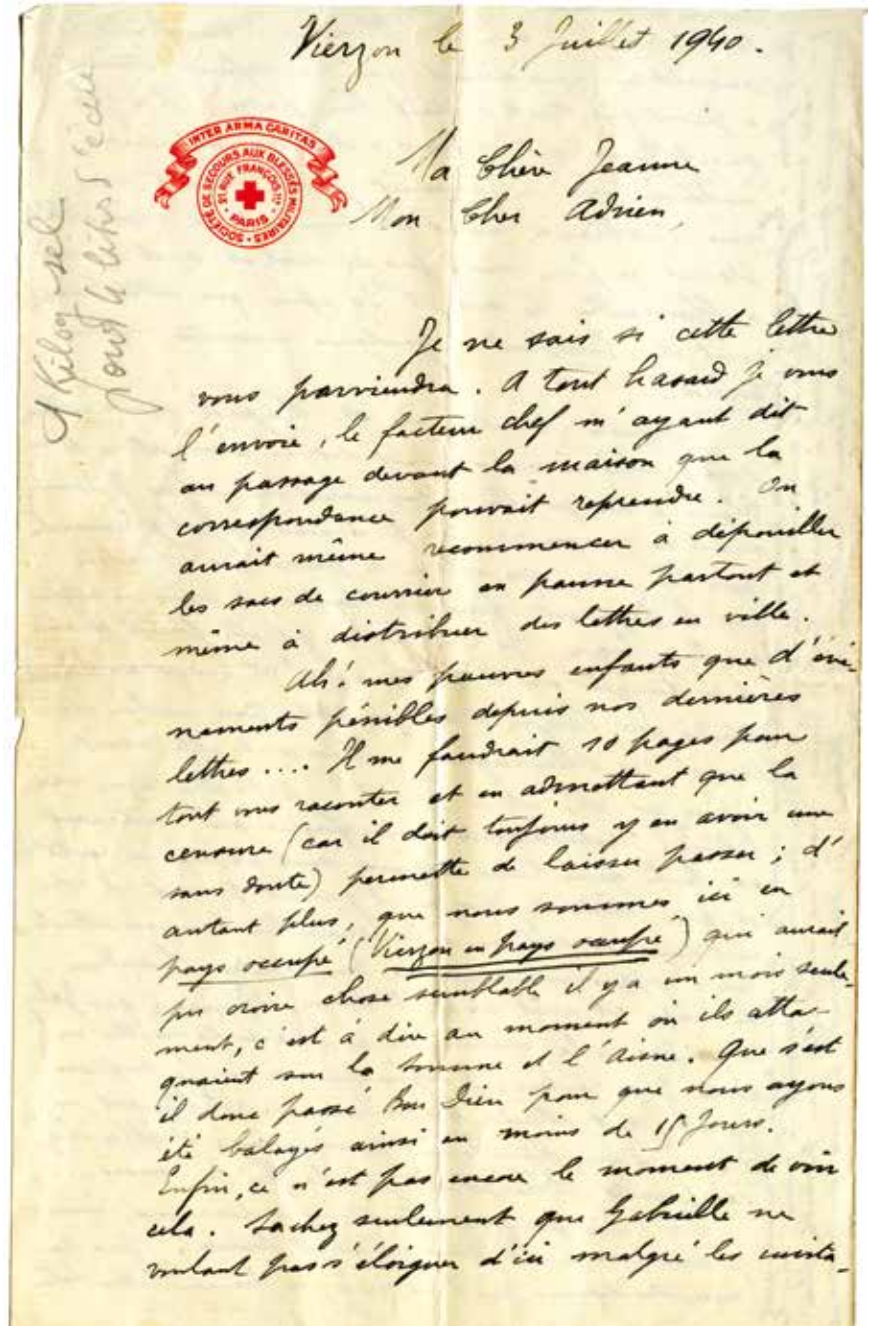 Vierzon le 3 Juillet 1940.
INTER ARMA CARITAS
SOCIÉTÉ DE SECOURS AUX BLESSÉS MILITAIRES
21, RUE FRANÇOIS 1ER
PARIS
Ma Chère Jeanne
Mon Cher Adrien,
1 Kilog sel
pour
Je ne sais si cette lettre
vous parviendra. A tout hasard je vous
l'envoie, le facteur chef m'ayant dit
au passage devant la maison que la
correspondance pouvait reprendre. On
aurait même recommencer à dépouiller
les sacs de courrier en panne partout et
même à distribuer des lettres en ville.
Ah! mes pauvres enfants que d'évé-
nements pénibles depuis nos dernières
lettres.... Il me faudrait 10 pages pour
tout vous raconter et en admettant que la
censure (car il doit toujours y en avoir une
sans doute) permette de laisser passer; d'
autant plus, que nous sommes ici en
pays occupé (Vierzon en pays occupé) qui aurait
pu croire chose semblable il y a un mois seule-
ment, c'est à dire au moment où ils atta-
quaient sur la Somme et l'Aisne. Que s'est
il donc passé Bon Dieu pour que nous ayons
été balayés ainsi en moins de 15 Jours.
Enfin, ce n'est pas encore le moment de voir
cela. Sachez seulement que Gabrielle ne
voulant pas s'éloigner d'ici malgré les invita-